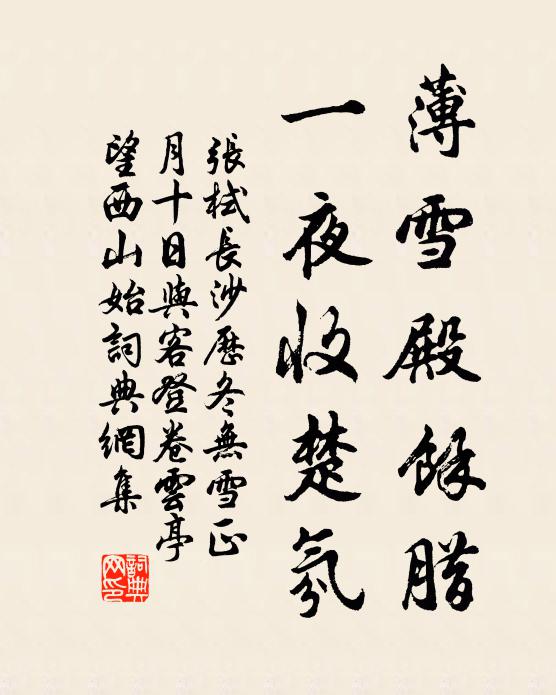 薄雪殿餘腊
一夜收楚氛
張栻長沙歷冬無雪正
月十日與客登卷雲亭
望西山始詞典網集
詞典
网印